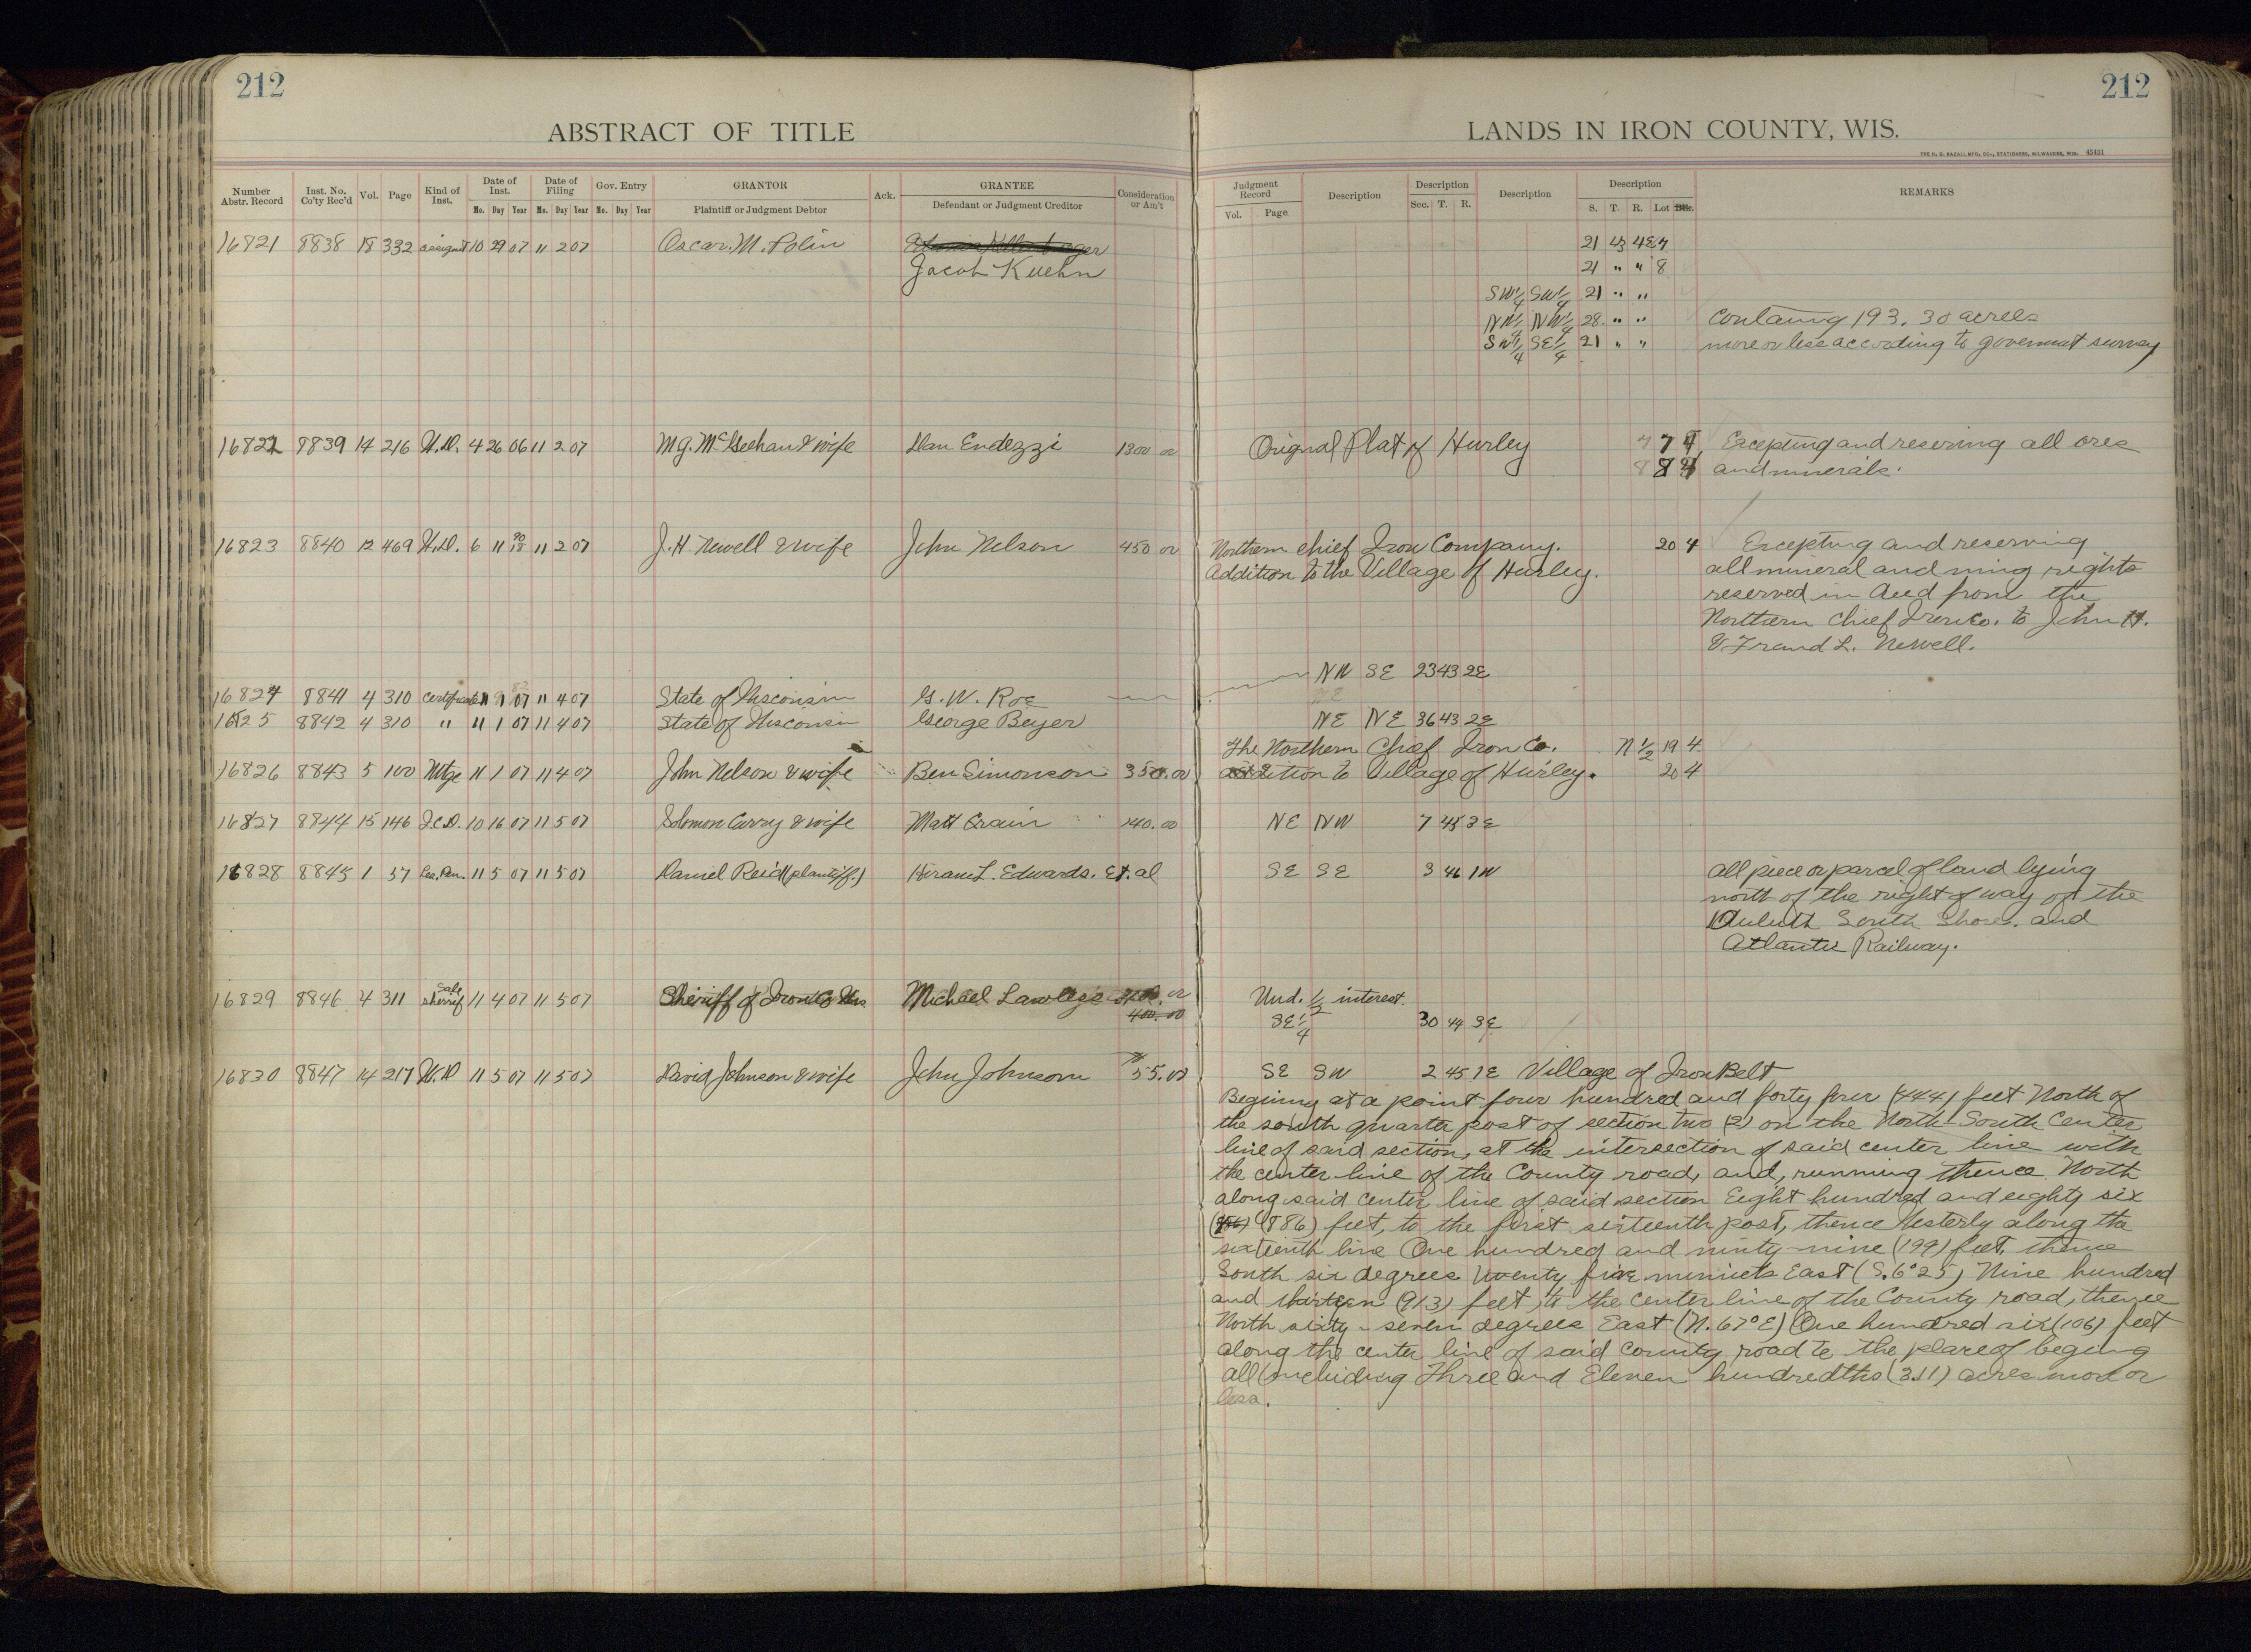 212
212
ABSTRACT OF TITLE
LANDS IN IRON COUNTY, WIS.
THE H. G. RAZALL MFG. CO., STATIONERS, MILWAUKEE, WIS. 45431
Number Abstr. Record Inst. No. Co'ty Rec'd Vol. Page Kind of Inst. Date of Inst. Mo. Day Year Date of Filing Mo. Day Year Gov. Entry Mo. Day Year GRANTOR Plaintiff or Judgment Debtor Ack. GRANTEE Defendant or Judgment Creditor Consideration or Am't
Judgment Record Vol. Page Description Description Sec. T. R. Description Description S. T. R. Lot Blk. REMARKS
16821 8838 18 332 assignt 10 29 07 11 2 07 Oscar. M. Polin
Jacob Kuehn
21 43 4E 7
21 " " 8
SW1/4 SW1/4 21 " "
NW1/4 NW1/4 28 " " Containg 193.30 acres
SW1/4 SE1/4 21 " " more or less according to government survey
16822 8839 14 216 W.D. 4 26 06 11 2 07 M.J. McGeehan & wife Dan Endezzi 1300 00 Orignal Plat of Hurley 7 4 Excepting and resering all ores
8 4 and minerals.
16823 8840 12 469 W.D. 6 11 11 2 07 J.H. Newell & wife John Nelson 450 00 Northern chief Iron Company. 20 4 Excepting and reserving
Addition to the Village of Hurley. all mineral and ming rights
reserved in deed from the
Northern Chief Iron Co. to John H.
& Frand L. Newell.
NW SE 23 43 2E
16824 8841 4 310 Certificate 11 07 11 4 07 State of Wisconsin G. W. Roe
16825 8842 4 310 " 11 1 07 11 4 07 State of Wisconsin George Beyer NE NE 36 43 2E
The Northern Chief Iron Co. N 1/2 19 4
16826 8843 5 100 Mtge 11 1 07 11 4 07 John Nelson & wife Ben Simonson 350.00 addition to Village of Hurley. 20 4
16827 8844 15 146 Q.C.D. 10 16 07 11 5 07 Solomon Curry & wife Matt Crain 140.00 NE NW 7 45 3E
16828 8845 1 57 Les. Pen. 11 5 07 11 5 07 Daniel Reid (plantiff.) Hiram L. Edwards. Et. al SE SE 3 46 1W All piece or parcel of land lying
north of the right of way of the
Duluth South Shore. and
Atlantic Railway.
16829 8846 4 311 Sale sherrif 11 4 07 11 5 07 Sheriff of Iron Co Wis Michael Lawless 400.00 Und. 1/2 interest.
SE1/4 30 44 3E
16830 8847 14 217 W.D 11 5 07 11 5 07 David Johnson & wife John Johnson 55.00 SE SW 2 45 1E Village of Iron Belt
Beginng at a point four hundred and forty four (444) feet North of
the south quarter post of section two (2) on the North South Center
line of said section, at the intersection of said center line with
the center line of the County road, and, running thence North
along said center line of said section Eight hundred and eighty six
(886) feet, to the first sixteenth post, thence Westerly along the
sixteenth line One hundred and ninty-nine (199) feet, thence
South six degrees twenty five minuets East (S.6°25) Nine hundred
and thirteen (913) feet, to the center line of the County road, thence
North sixty-seven degrees East (N.67°E) One hundred six (106) feet
along the center line of said County road to the place of beging
all including Three and Eleven hundredths (3.11) acres more or
less.